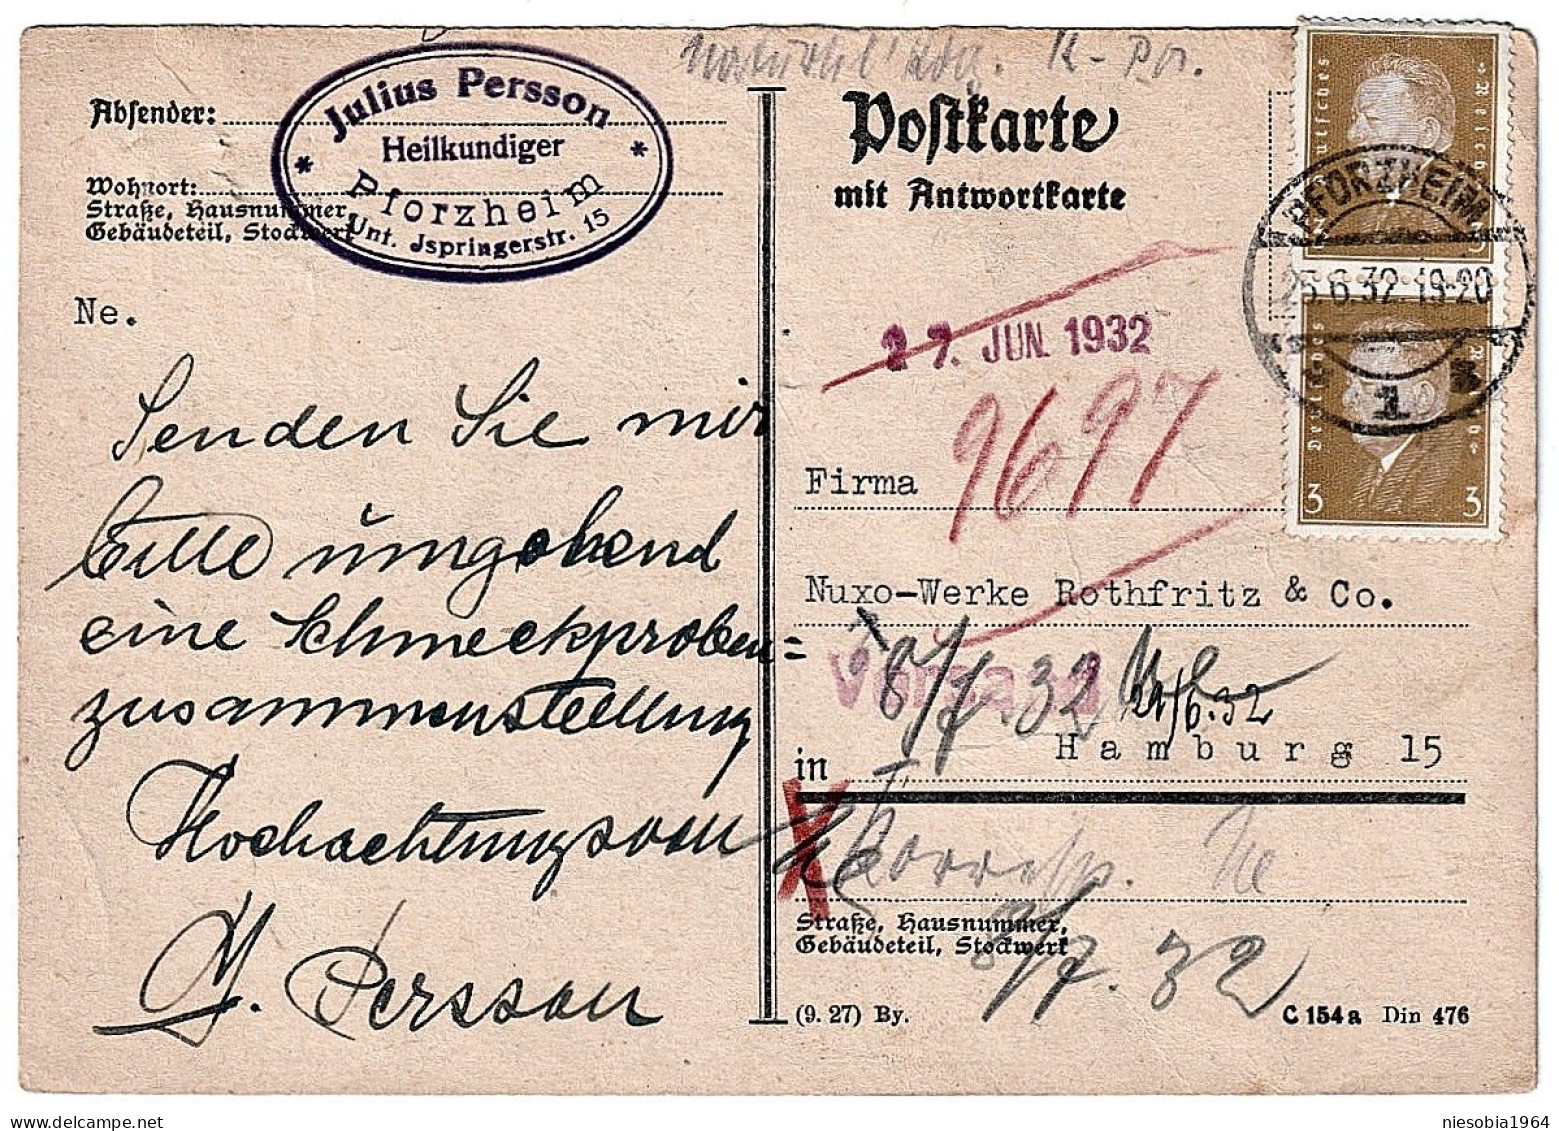 K-Pr.
Absender:
Wohnort:
Straße, Hausnummer,
Gebäudeteil, Stockwerk
* Julius Persson *
Heilkundiger
Pforzheim
Unt. Jspringerstr. 15
Postkarte
mit Antwortkarte
Deutsches Reich
PFORZHEIM
25.6.32 19-20
1
Deutsches Reich
3 3
Ne.
Senden Sie mir
bitte umgehend
eine Schmeckproben=
zusammenstellung
Hochachtungsvoll
J. Persson
27. JUN. 1932
9697
Firma
Nuxo-Werke Rothfritz & Co.
Versand
8/7.32
27/6.32
in Hamburg 15
Korresp. Ne
8/7.32
Straße, Hausnummer,
Gebäudeteil, Stockwerk
(9. 27) By.
C 154a Din 476
niesobia1964